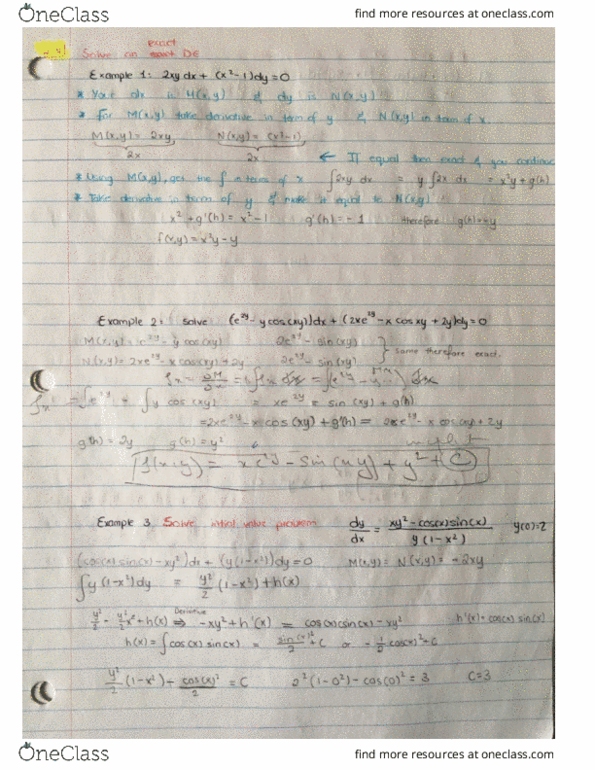 OneClass
find more resources at oneclass.com
exact
Solve an exact DE
Example 1: 2xy dx + (x²-1)dy = 0
* Your dx is M(x,y) & dy is N(x,y)
* For M(x,y) take derivative in term of y & N(x,y) in term of x.
M(x,y) = 2xy N(x,y) = (x²-1)
2x 2x ← If equal then exact & you continue
* Using M(x,y), get the ∫ in terms of x ∫2xy dx = y∫2x dx = x²y + g(h)
* Take derivative in term of y & make it equal to N(x,y)
x² + g'(h) = x² - 1 g'(h) = -1 therefore g(h) = -y
f(x,y) = x²y - y
Example 2: solve (e²ʸ - y cos(xy))dx + (2xe²ʸ - x cos xy + 2y)dy = 0
M(x,y) = e²ʸ - y cos(xy) 2e²ʸ - sin(xy)
N(x,y) = 2xe²ʸ - x cos(xy) + 2y 2e²ʸ - sin(xy) } same therefore exact.
= xe²ʸ sin(xy) + g(h)
= 2xe²ʸ - x cos(xy) + g'(h) = 2xe²ʸ - x cos xy + 2y
g'(h) = 2y g(h) = y²
f(x,y) = xe²ʸ - sin(xy) + y² + C
Example 3 Solve initial value problem dy/dx = xy² - cos(x)sin(x) / y(1-x²) y(0)=2
(cos(x)sin(x) - xy²)dx + (y(1-x²))dy = 0 M(x,y) = N(x,y) = -2xy
∫y(1-x²)dy = y²/2 (1-x²) + h(x)
y²/2 - y²/2 x² + h(x) Derivative ⇒ -xy² + h'(x) = cos(x)sin(x) - xy² h'(x) = cos(x) sin(x)
h(x) = ∫cos(x) sin(x) = sin(x)²/2 + C or -1/2 cos(x)² + C
y²/2 (1-x²) - cos(x)²/2 = C 2²(1-0²) - cos(0)² = 3 C=3
OneClass
find more resources at oneclass.com